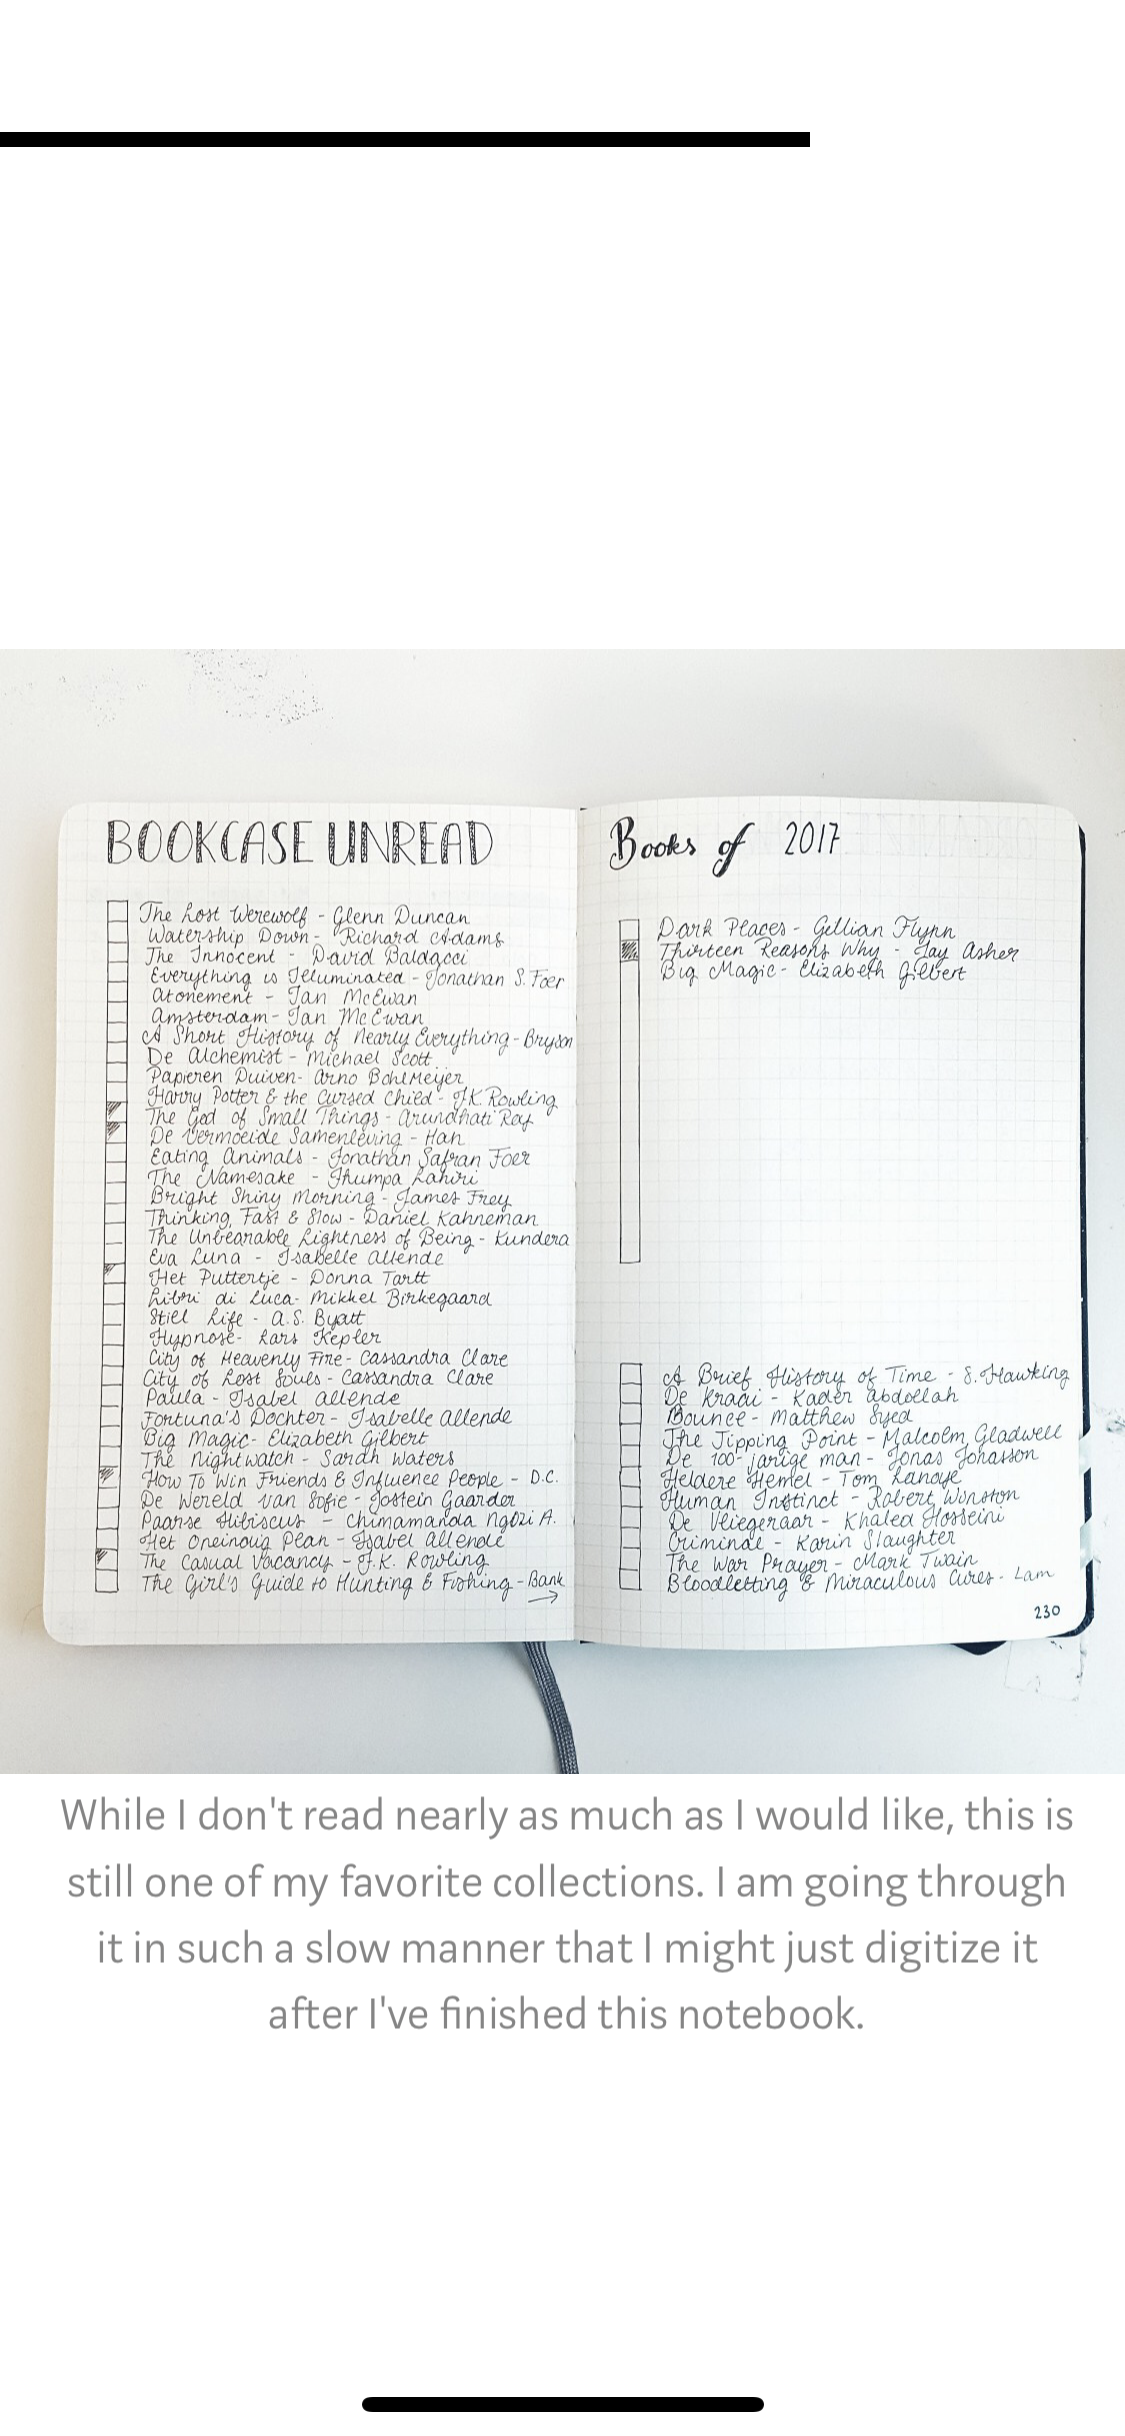 BOOKCASE UNREAD
The Lost Werewolf - Glenn Duncan
Watership Down - Richard Adams
The Innocent - David Baldacci
Everything is Illuminated - Jonathan S. Foer
Atonement - Ian McEwan
Amsterdam - Ian McEwan
A Short History of Nearly Everything - Bryson
De Alchemist - Michael Scott
Papieren Duiven - Arno Bohlmeijer
Harry Potter & the Cursed Child - J.K. Rowling
The God of Small Things - Arundhati Roy
De Vermoeide Samenleving - Han
Eating Animals - Jonathan Safran Foer
The Namesake - Jhumpa Lahiri
Bright Shiny Morning - James Frey
Thinking, Fast & Slow - Daniel Kahneman
The Unbearable Lightness of Being - Kundera
Eva Luna - Isabelle Allende
Het Puttertje - Donna Tartt
Libri di Luca - Mikkel Birkegaard
Still Life - A.S. Byatt
Hypnose - Lars Kepler
City of Heavenly Fire - Cassandra Clare
City of Lost Souls - Cassandra Clare
Paula - Isabel Allende
Fortuna's Dochter - Isabelle Allende
Big Magic - Elizabeth Gilbert
The Nightwatch - Sarah Waters
How To Win Friends & Influence People - D.C.
De Wereld van Sofie - Jostein Gaarder
Paarse Hibiscus - Chimamanda Ngozi A.
Het Oneindig Plan - Isabel Allende
The Casual Vacancy - J.K. Rowling
The Girl's Guide to Hunting & Fishing - Bank
→
Books of 2017
Dark Places - Gillian Flynn
Thirteen Reasons Why - Jay Asher
Big Magic - Elizabeth Gilbert
A Brief History of Time - S. Hawking
De Kraai - Kader Abdollah
Bounce - Matthew Syed
The Tipping Point - Malcolm Gladwell
De 100-jarige man - Jonas Jonasson
Heldere Hemel - Tom Lanoye
Human Instinct - Robert Winston
De Vliegeraar - Khaled Hosseini
Criminal - Karin Slaughter
The War Prayer - Mark Twain
Bloodletting & Miraculous Cures - Lam
230
While I don't read nearly as much as I would like, this is
still one of my favorite collections. I am going through
it in such a slow manner that I might just digitize it
after I've finished this notebook.